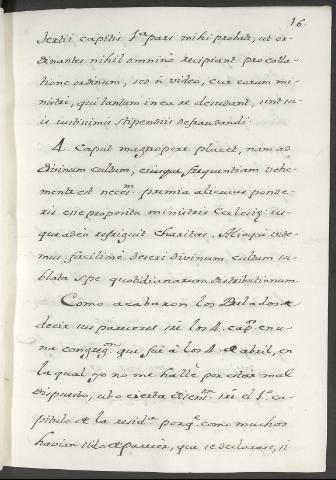 16.
tertii capitis 1.ª pars mihi probat, ut or-
dinantes nihil omnino recipiant pro colla-
tione ordinum, sed ñ video, cur eorum mi-
nistri, qui tantum in ea re desudant, sint su-
is iustissimis stipendiis defraudandi.
4. Caput magnopere placet, nam ad
divinum cultum, eiusque frequentiam vehe-
menter est neces.m premia alicuius ponde-
ris esse proposita ministris Ecclesię: us-
que adeo refriguit charitas. Alioqui vide-
mus facilimè deseri divinum cultum su-
blata spe quotidianarum distributionum.
Como acabaron los Prelados de
decir sus pareceres sñ los 4. cap.os en u-
na congreg.on que fuè à los 4. de abril, en
la qual yo no me hallè por estàr mal
dispuesto, ubo cierta disen.on sñ el 1.º ca-
pitulo de la resid.a porq.e como muchos
havian sido de parecèr, que se declarase, si